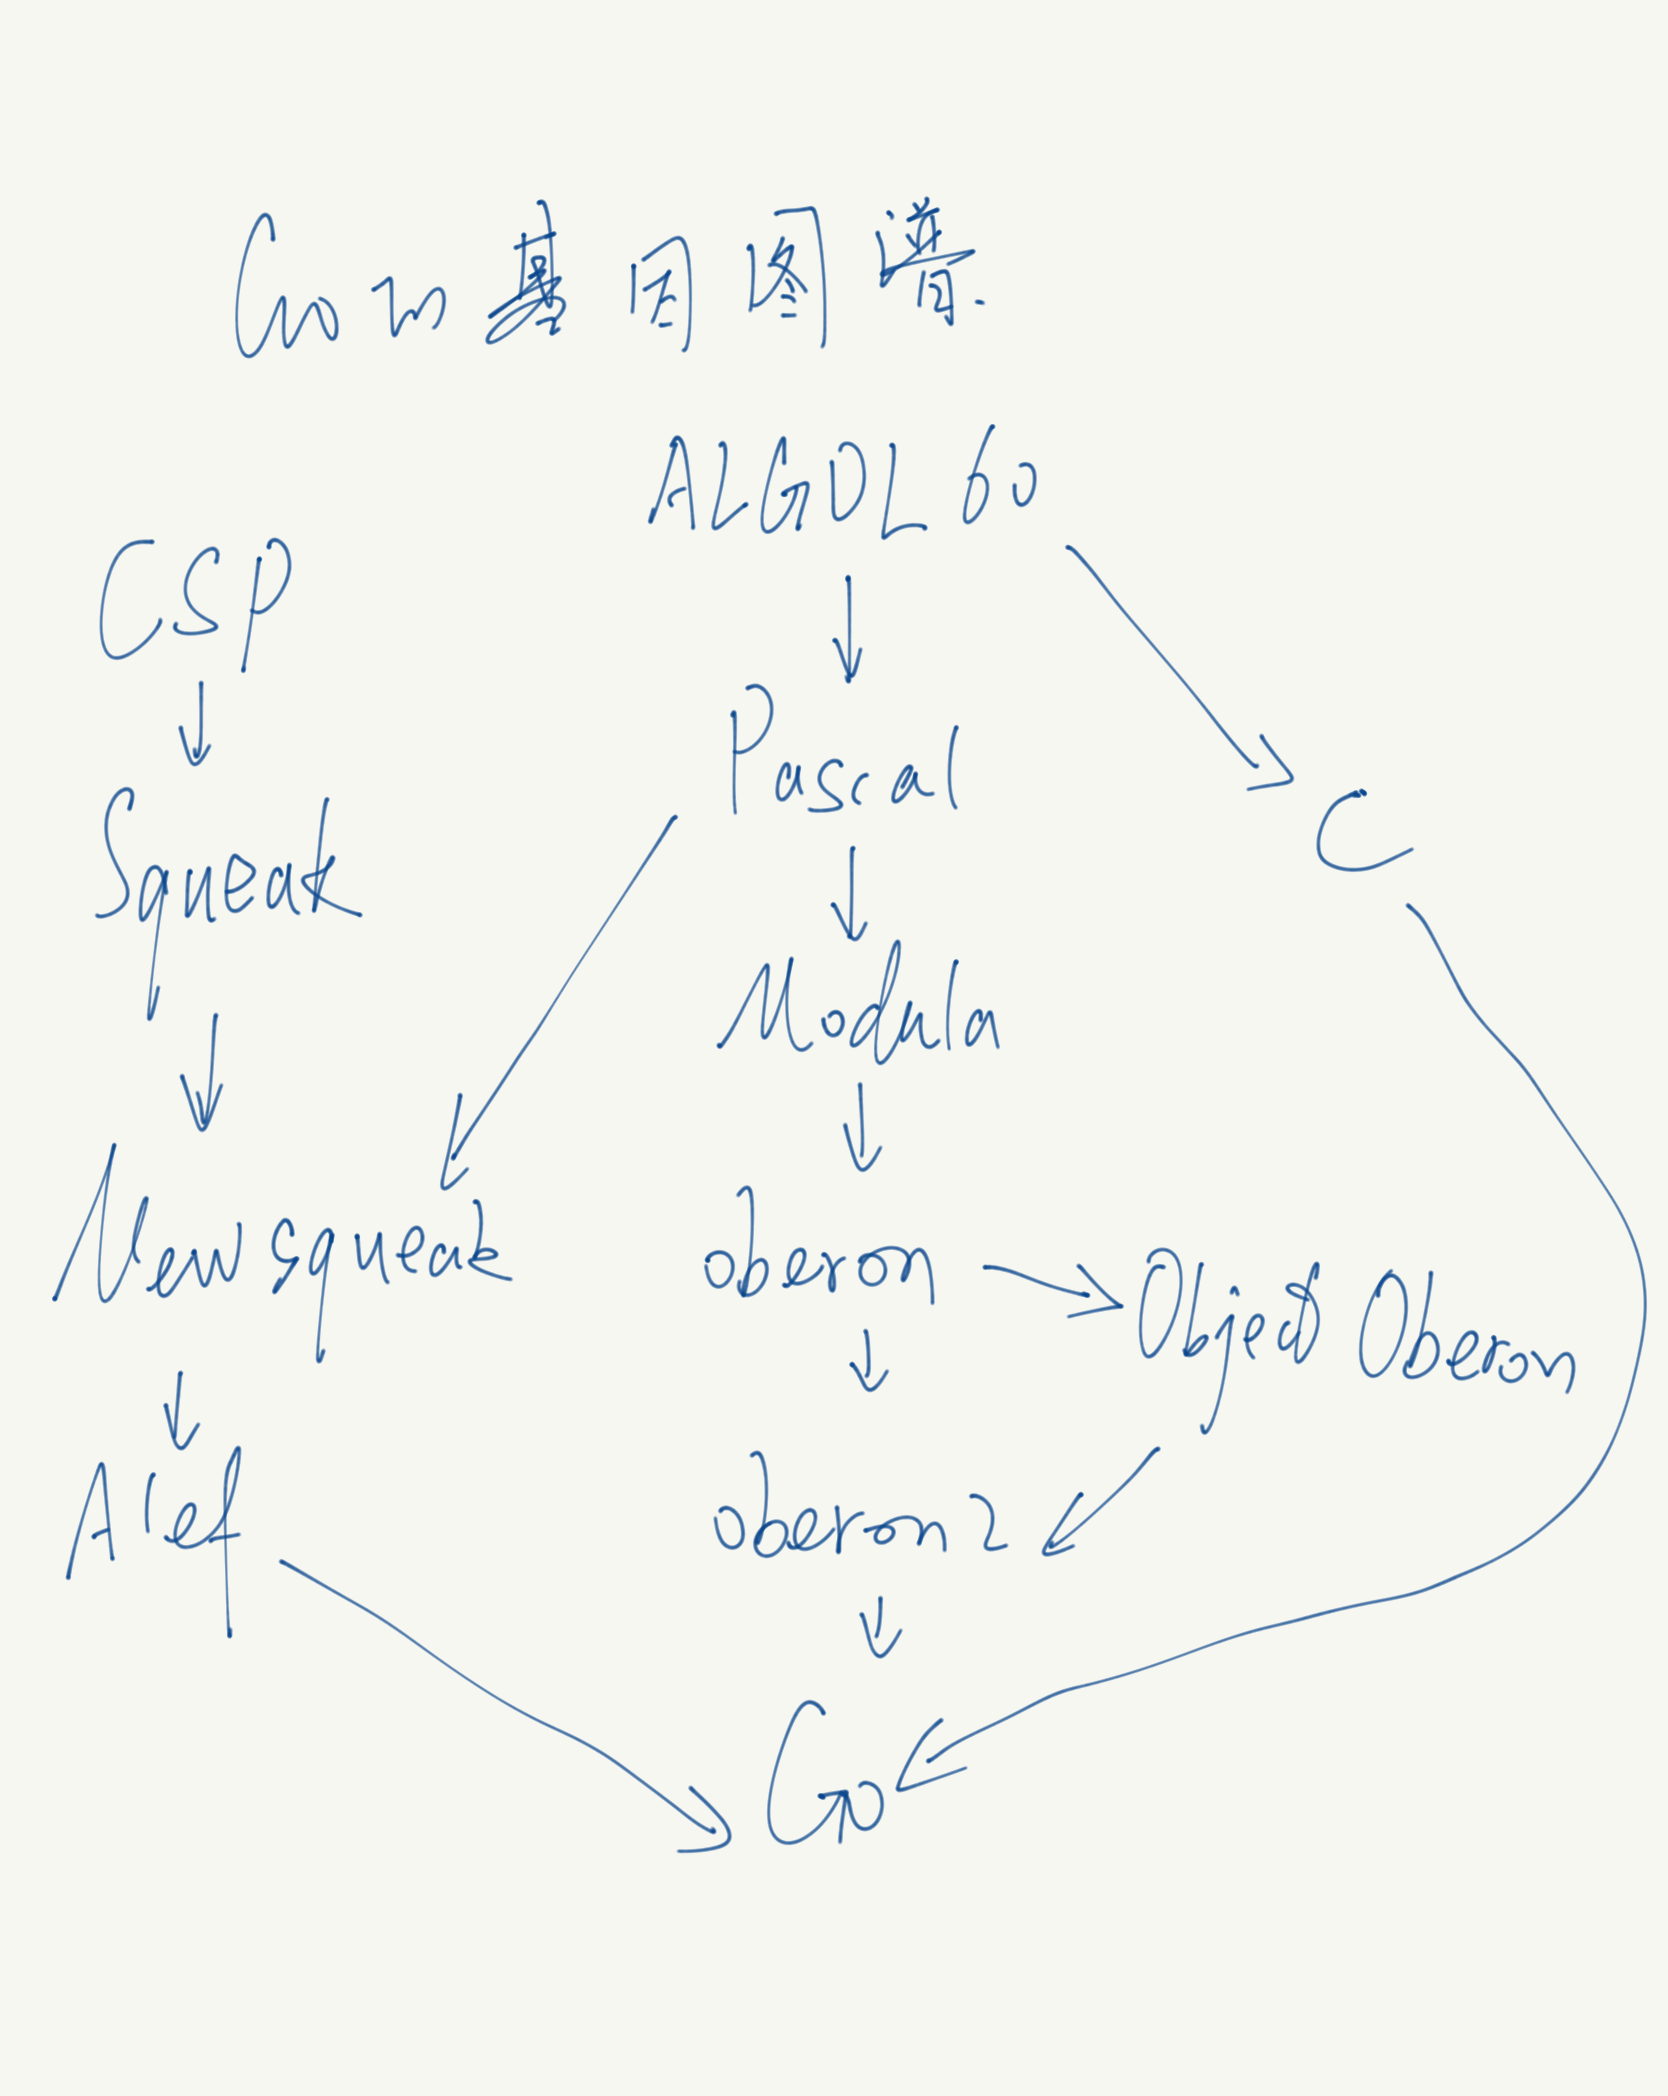 Go的基因图谱.
ALGOL 60
CSP
Pascal
C
Squeak
Modula
Newsqueak
oberon
Object Oberon
Alef
oberon 2
Go